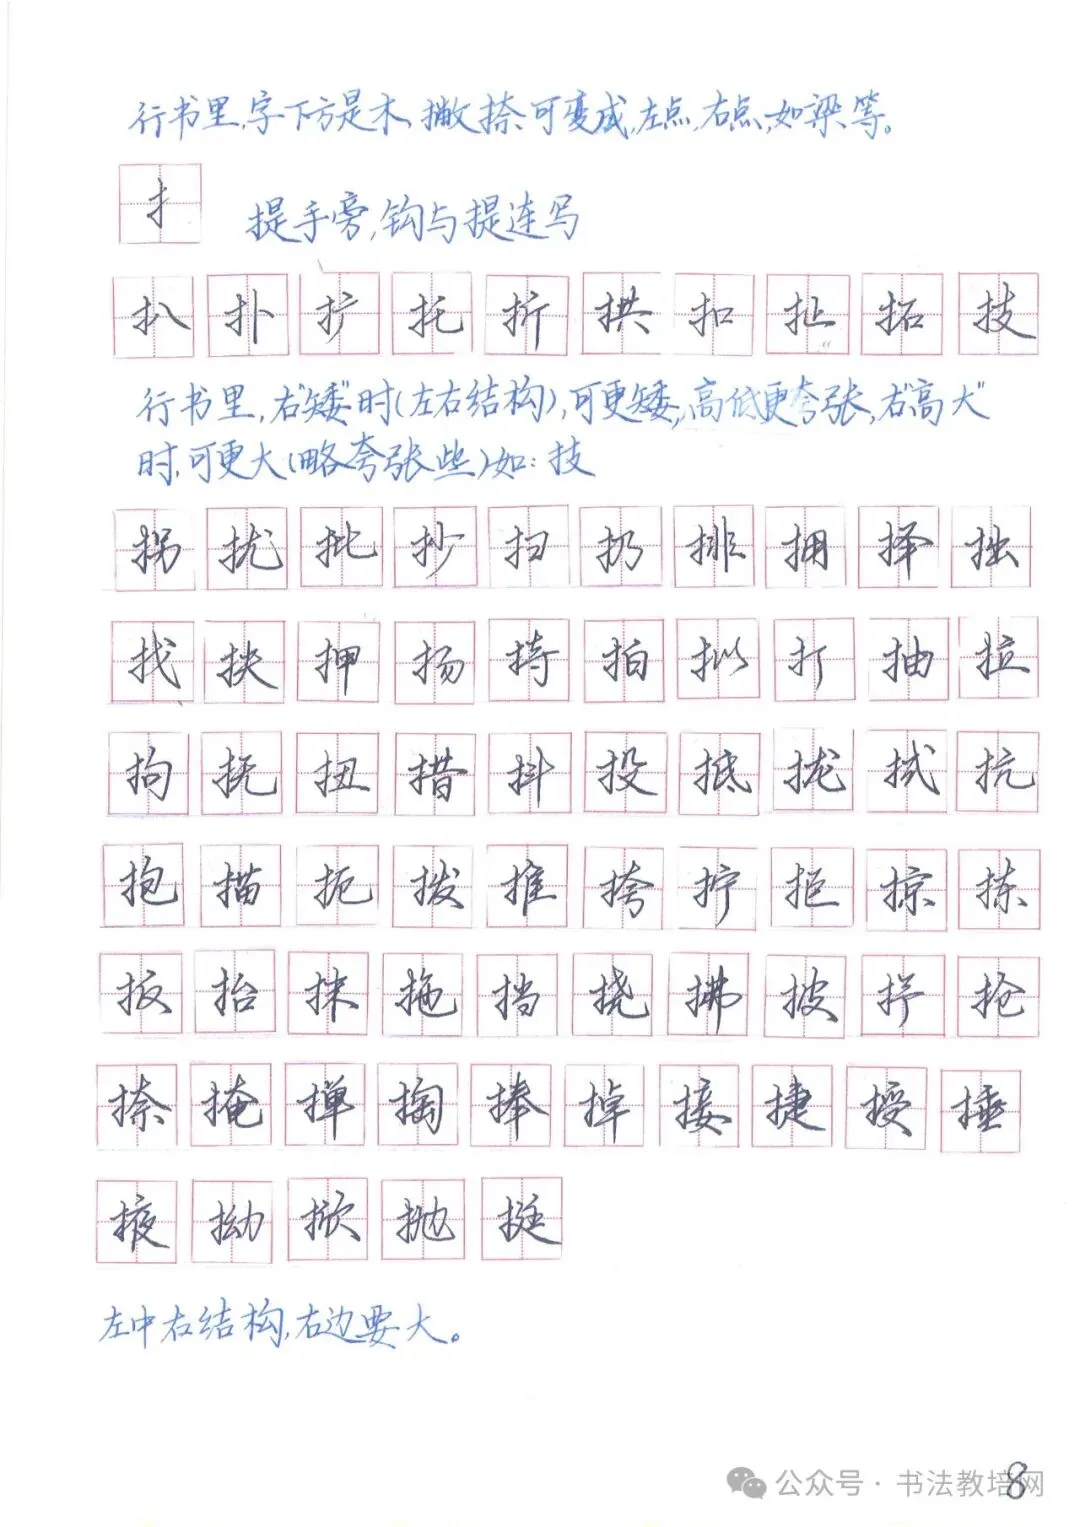 行书里,字下方是木,撇捺可变成,左点,右点,如梁等。
扌 提手旁,钩与提连写
扒 扑 扩 托 折 拱 扣 扯 拓 技
行书里,右“矮”时(左右结构),可更矮,高低更夸张,右“高大”
时,可更大(略夸张些)如:技
拐 扰 批 抄 扫 扔 排 拥 择 拙
找 抉 押 扬 掎 拍 拟 打 抽 拉
拘 抚 扭 措 抖 投 抵 拢 拭 抗
抱 描 扼 拨 推 挎 拧 拒 掠 拣
扳 抬 抹 拖 挡 挠 拂 披 抒 抢
捺 掩 掸 掏 捧 掉 接 捷 授 捶
掖 拗 掀 抛 挺
左中右结构,右边要大。
8
公众号·书法教培网